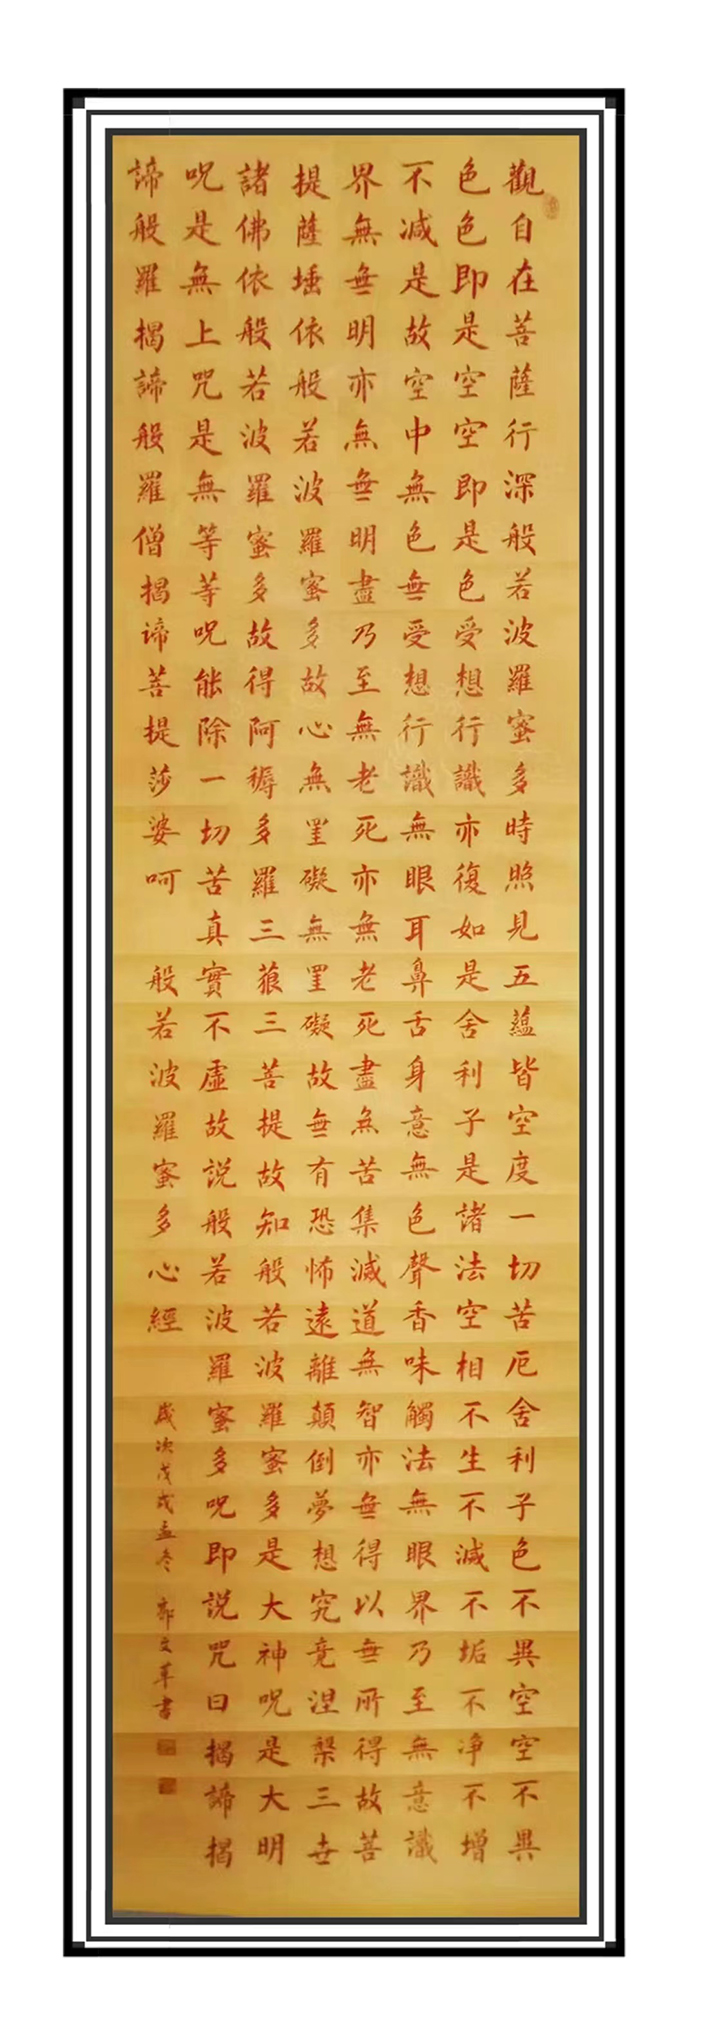 觀自在菩薩行深般若波羅蜜多時照見五蘊皆空度一切苦厄舍利子色不異空空不異
色色即是空空即是色受想行識亦復如是舍利子是諸法空相不生不滅不垢不净不增
不减是故空中無色無受想行識無眼耳鼻舌身意無色聲香味觸法無眼界乃至無意識
界無無明亦無無明盡乃至無老死亦無老死盡無苦集滅道無智亦無得以無所得故菩
提薩埵依般若波羅蜜多故心無罣礙無罣礙故無有恐怖遠離顛倒夢想究竟涅槃三世
諸佛依般若波羅蜜多故得阿耨多羅三藐三菩提故知般若波羅蜜多是大神呪是大明
呪是無上咒是無等等呪能除一切苦真實不虛故説般若波羅蜜多呪即説咒曰揭諦揭
諦般羅揭諦般羅僧揭諦菩提莎婆呵
般若波羅蜜多心經
歲次戊戌孟冬 郭文革書